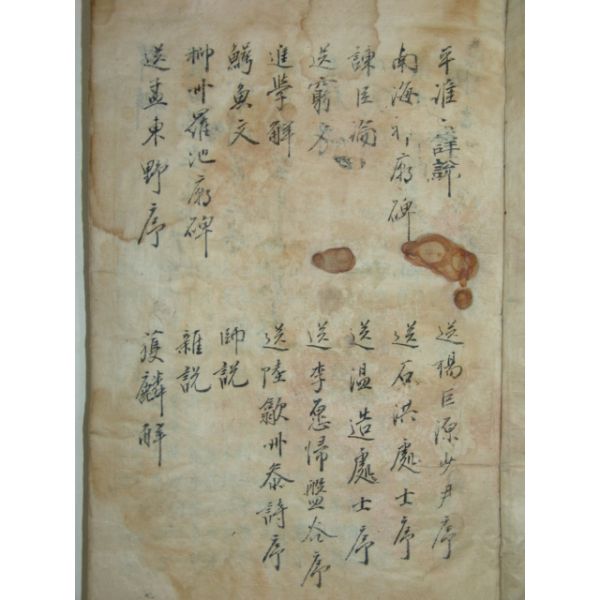 平淮
南海神廟碑
諫臣論
送窮文
進學解
鰐魚文
柳州羅池廟碑
送孟東野序
送楊巨源少尹序
送石洪處士序
送溫造處士序
送李愿歸盤谷序
送陸歙州叅詩序
師説
雜説
獲麟解